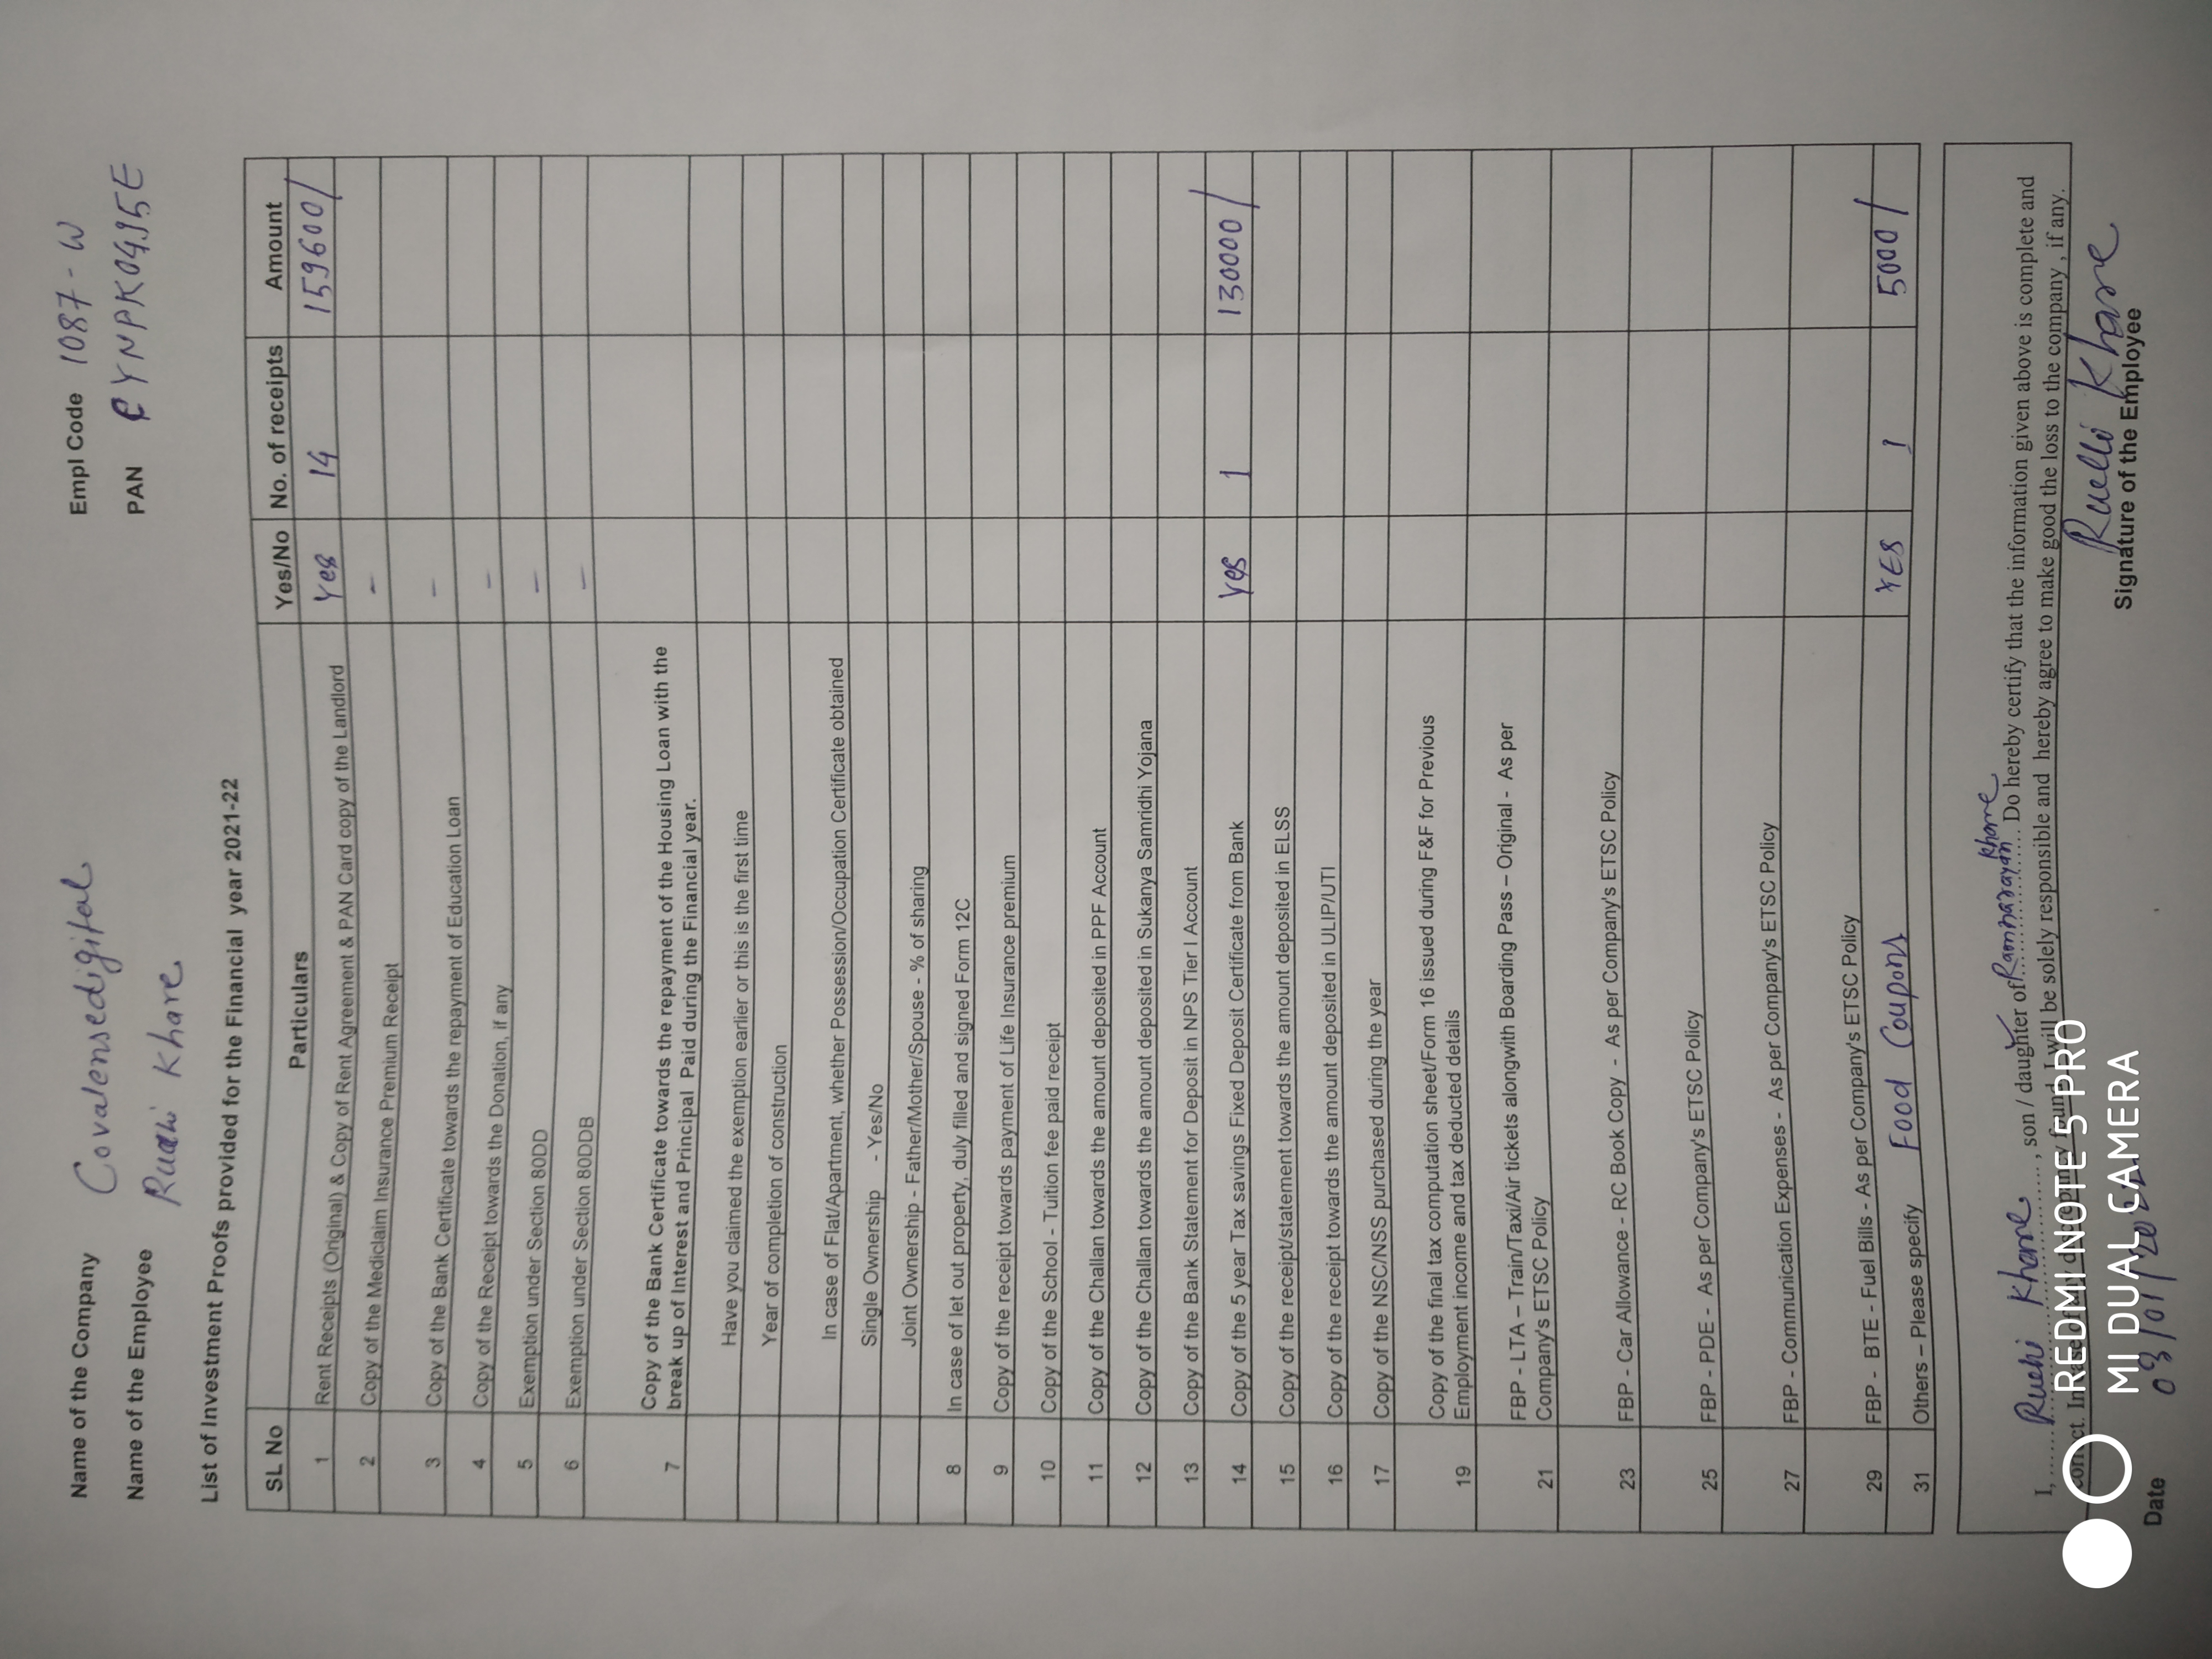 Name of the Company Covalensedigital Empl Code 1087-W
Name of the Employee Ruchi Khare PAN EYNPK0495E
List of Investment Proofs provided for the Financial year 2021-22
SL No Particulars Yes/No No. of receipts Amount
1 Rent Receipts (Original) & Copy of Rent Agreement & PAN Card copy of the Landlord Yes 14 159600/
2 Copy of the Mediclaim Insurance Premium Receipt -
3 Copy of the Bank Certificate towards the repayment of Education Loan -
4 Copy of the Receipt towards the Donation, if any -
5 Exemption under Section 80DD -
6 Exemption under Section 80DDB -
7 Copy of the Bank Certificate towards the repayment of the Housing Loan with the
break up of Interest and Principal Paid during the Financial year.
Have you claimed the exemption earlier or this is the first time
Year of completion of construction
In case of Flat/Apartment, whether Possession/Occupation Certificate obtained
Single Ownership - Yes/No
Joint Ownership - Father/Mother/Spouse - % of sharing
8 In case of let out property, duly filled and signed Form 12C
9 Copy of the receipt towards payment of Life Insurance premium
10 Copy of the School - Tuition fee paid receipt
11 Copy of the Challan towards the amount deposited in PPF Account
12 Copy of the Challan towards the amount deposited in Sukanya Samridhi Yojana
13 Copy of the Bank Statement for Deposit in NPS Tier I Account
14 Copy of the 5 year Tax savings Fixed Deposit Certificate from Bank Yes 1 130000/
15 Copy of the receipt/statement towards the amount deposited in ELSS
16 Copy of the receipt towards the amount deposited in ULIP/UTI
17 Copy of the NSC/NSS purchased during the year
Copy of the final tax computation sheet/Form 16 issued during F&F for Previous
19 Employment income and tax deducted details
FBP - LTA – Train/Taxi/Air tickets alongwith Boarding Pass – Original - As per
21 Company's ETSC Policy
23 FBP - Car Allowance - RC Book Copy - As per Company's ETSC Policy
25 FBP - PDE - As per Company's ETSC Policy
27 FBP - Communication Expenses - As per Company's ETSC Policy
29 FBP - BTE - Fuel Bills - As per Company's ETSC Policy
31 Others – Please specify Food Coupons YES 1 5000/
I, Ruchi Khare, son / daughter of Ramnarayan Khare. Do hereby certify that the information given above is complete and
correct. In case of any discrepancy found, I will be solely responsible and hereby agree to make good the loss to the company , if any.
Ruchi Khare
Signature of the Employee
Date 03/01/2022
REDMI NOTE 5 PRO
MI DUAL CAMERA